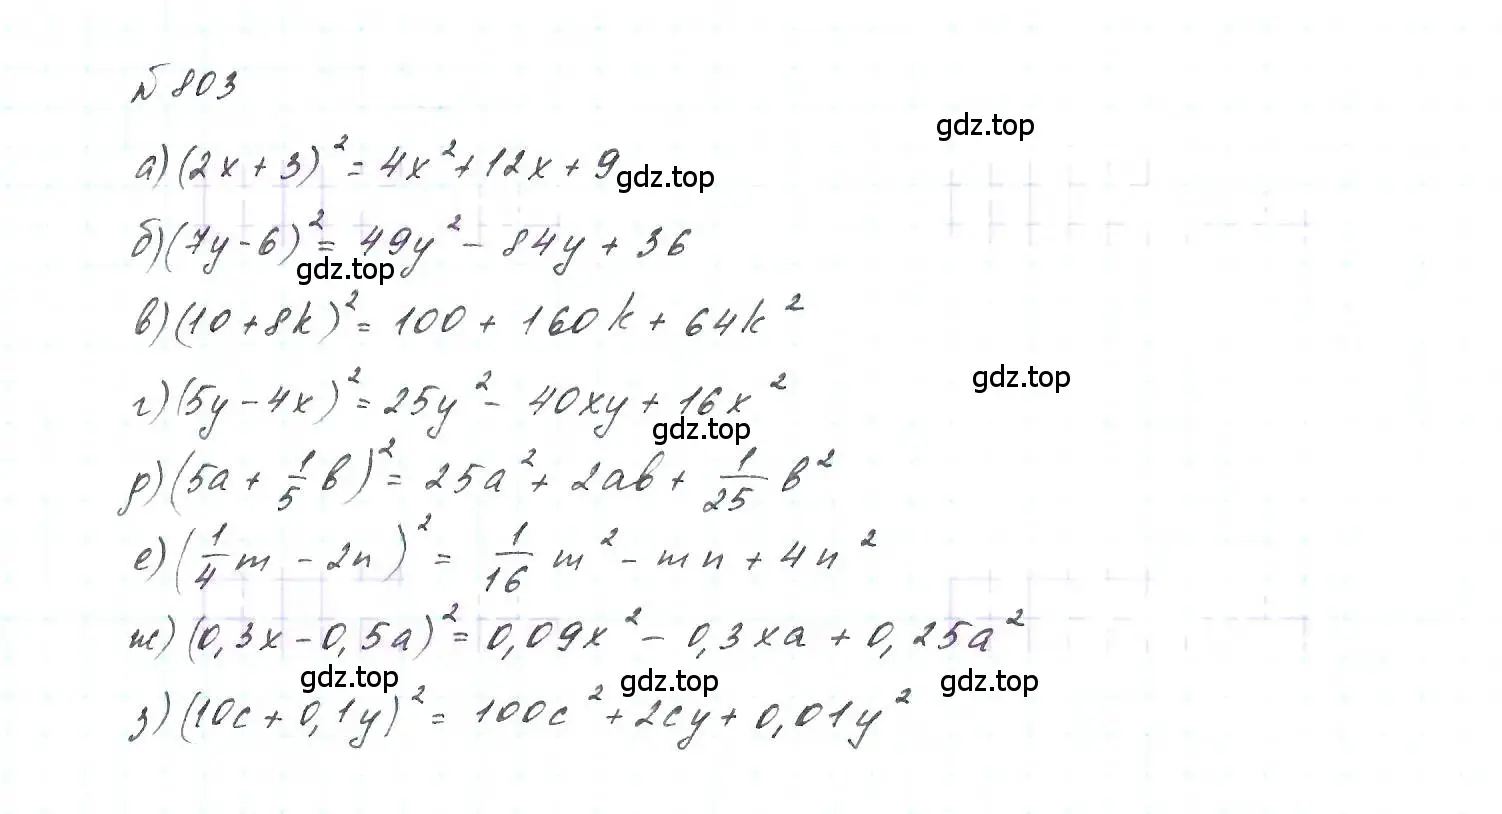 № 803
gdz.top
а) (2x + 3)² = 4x² + 12x + 9
gdz.top
б) (7y - 6)² = 49y² - 84y + 36
gdz.top
в) (10 + 8k)² = 100 + 160k + 64k²
gdz.top
г) (5y - 4x)² = 25y² - 40xy + 16x²
gdz.top
д) (5a + 1/5 b)² = 25a² + 2ab + 1/25 b²
е) (1/4 m - 2n)² = 1/16 m² - mn + 4n²
ж) (0,3x - 0,5a)² = 0,09x² - 0,3xa + 0,25a²
gdz.top gdz.top gdz.top
з) (10c + 0,1y)² = 100c² + 2cy + 0,01y²